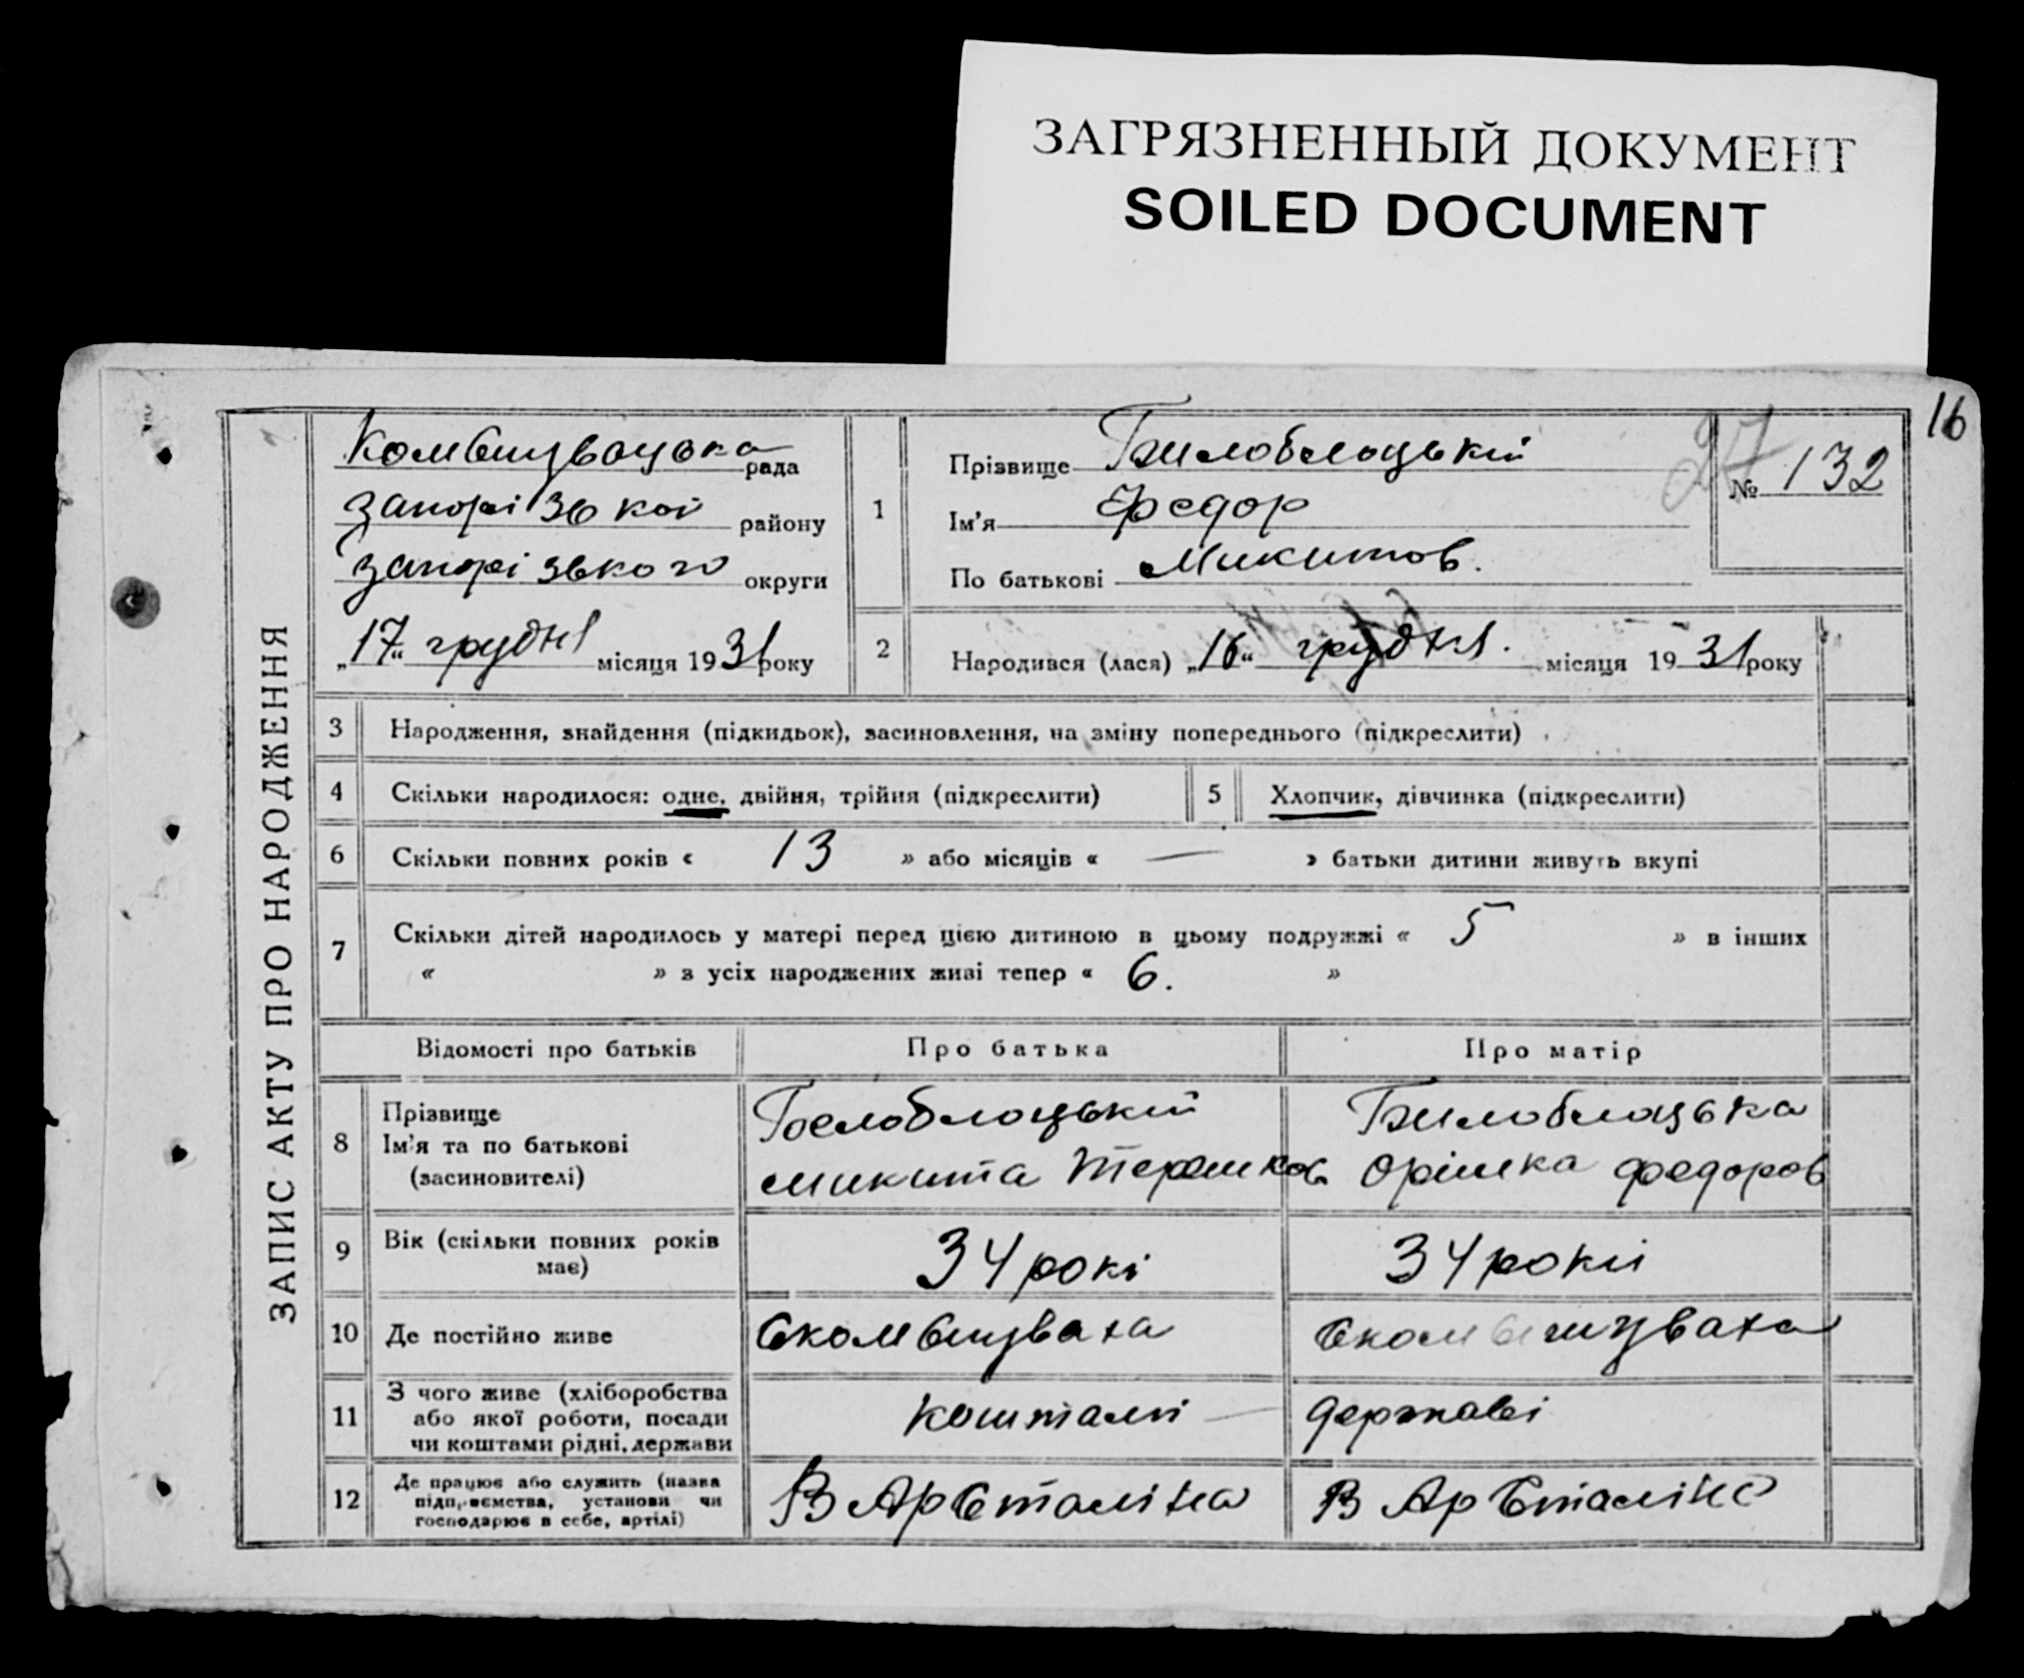 ЗАГРЯЗНЕННЫЙ ДОКУМЕНТ
SOILED DOCUMENT
16
ЗАПИС АКТУ ПРО НАРОДЖЕННЯ
рада
району
округи
„17“ грудня місяця 1931 року
1
Прізвище Билоблоцький
Ім'я Федор
По батькові Микитов.
27
№ 132
2 Народився (лася) „16“ грудня. місяця 1931 року
3 Народження, знайдення (підкидьок), засиновлення, на зміну попереднього (підкреслити)
4 Скільки народилося: одне, двійня, трійня (підкреслити) 5 Хлопчик, дівчинка (підкреслити)
6 Скільки повних років « 13 » або місяців « — » батьки дитини живуть вкупі
7 Скільки дітей народилось у матері перед цією дитиною в цьому подружжі « 5 » в інших
« » з усіх народжених живі тепер « 6. »
Відомості про батьків Про батька Про матір
8 Прізвище
Ім'я та по батькові
(засиновителі)
Белоблоцький Билоблоцька
микита федоров
9 Вік (скільки повних років
має)
34 рокі 34 роки
10 Де постійно живе
11 З чого живе (хліборобства
або якої роботи, посади
чи коштами рідні, держави
коштами — державі
12 Де працює або служить (назва
підприємства, установи чи
господарює в себе, артілі)
В Ар Сталіна В Ар Сталіна